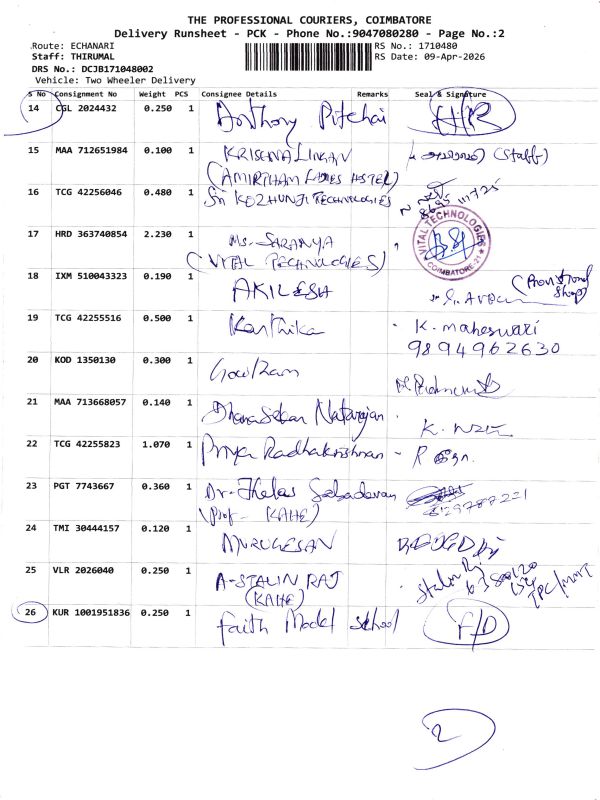 THE PROFESSIONAL COURIERS, COIMBATORE
Delivery Runsheet - PCK - Phone No.:9047080280 - Page No.:2
Route: ECHANARI RS No.: 1710480
Staff: THIRUMAL RS Date: 09-Apr-2026
DRS No.: DCJB171048002
Vehicle: Two Wheeler Delivery
S No Consignment No Weight PCS Consignee Details Remarks Seal & Signature
14 CGL 2024432 0.250 1 Anthony Pitchai H/R
15 MAA 712651984 0.100 1 KRISHNA LINGAN (Staff)
(AMIRTHAM LADIES HOSTEL)
16 TCG 42256046 0.480 1 Sri KOZHUNJI TECHNOLOGIES
17 HRD 363740854 2.230 1 Ms. SARANYA VITAL TECHNOLOGIES
(VITAL TECHNOLOGIES) COIMBATORE-21
18 IXM 510043323 0.190 1 AKILESH (Provisional Shop)
19 TCG 42255516 0.500 1 Karthika K. maheswari
9894962630
20 KOD 1350130 0.300 1 Gowtham
21 MAA 713668057 0.140 1 DhanaSekar Natarajan K.
22 TCG 42255823 1.070 1 Priya Radhakrishnan - R
23 PGT 7743667 0.360 1 Dr.
(Prof - KAHE)
24 TMI 30444157 0.120 1 MURUGESAN
25 VLR 2026040 0.250 1 A-STALIN RAJ Stalin Raj
(KAHE)
26 KUR 1001951836 0.250 1 Faith Model School F/D
2